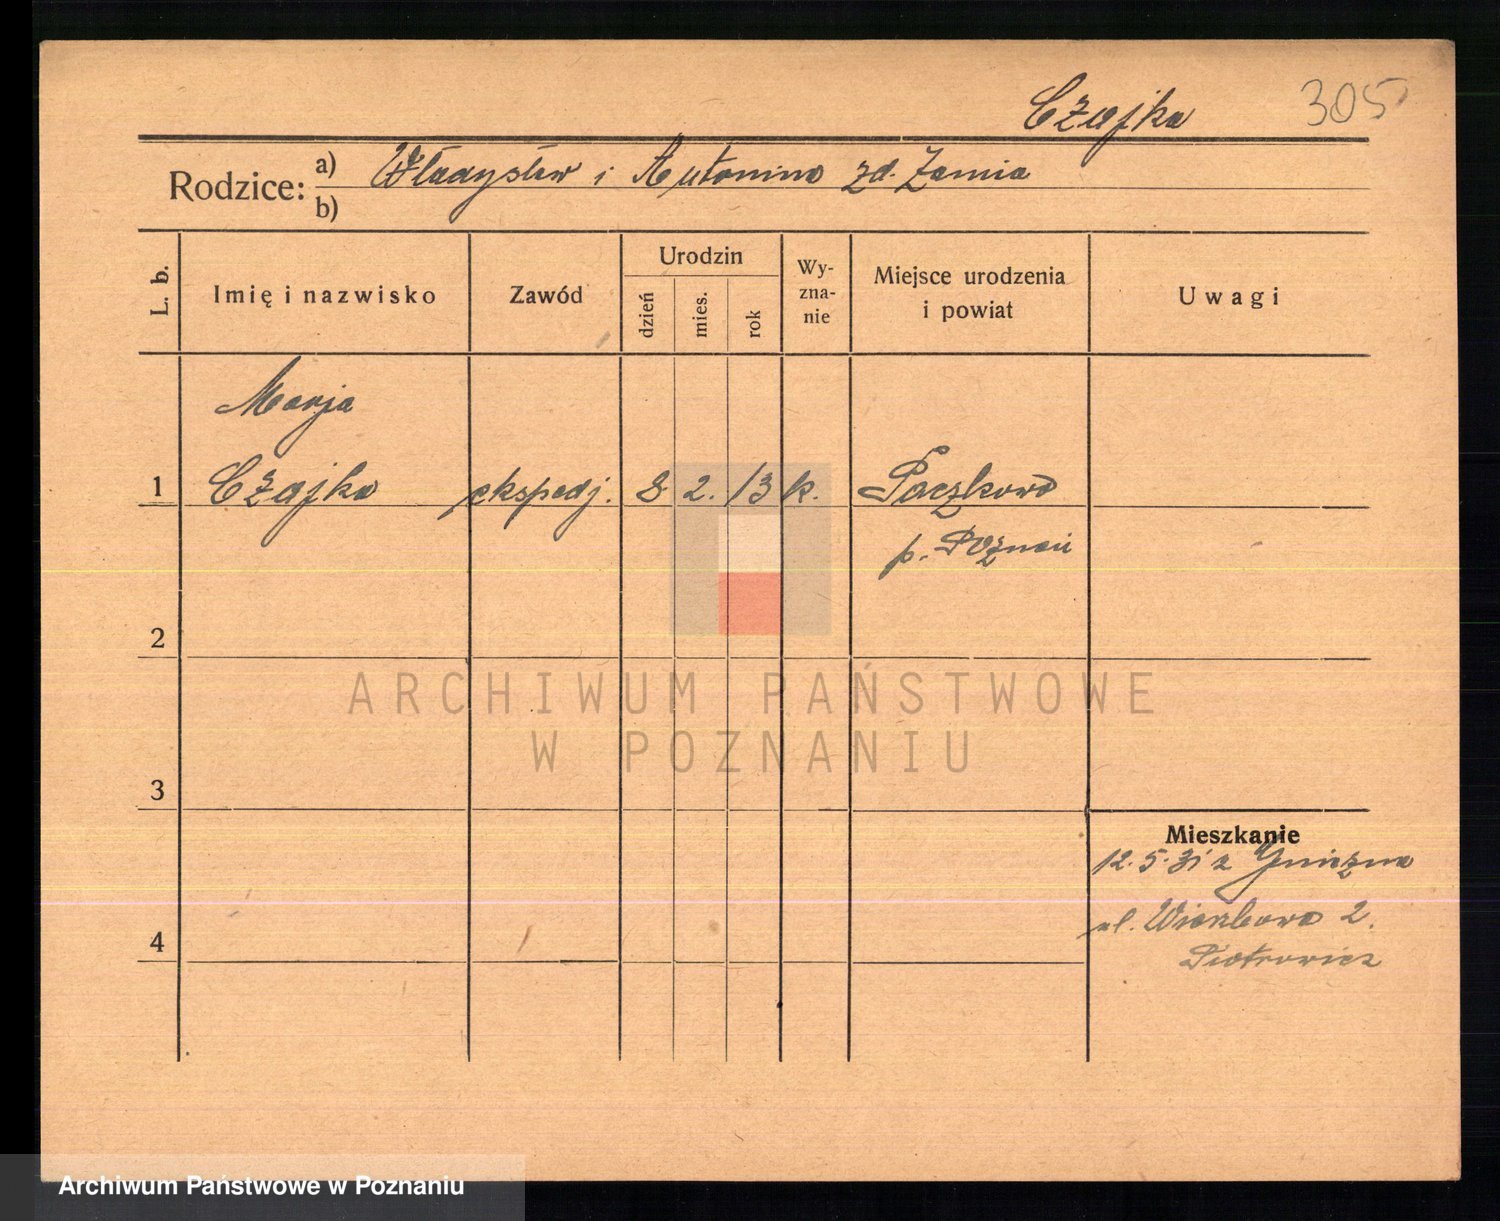 Czajka 305
Rodzice: a) Władysław i Antonina zd. Zamia
b)
L. b. Imię i nazwisko Zawód Urodzin dzień mies. rok Wyznanie Miejsce urodzenia i powiat Uwagi
Marja
1 Czajka ekspedj. 8 2. 13 k. Paczkowo
p. Poznań
2
ARCHIWUM PAŃSTWOWE
W POZNANIU
3
Mieszkanie
12.5.31 z Gniezna
ul. Wierzbowa 2.
4
Piotrowicz
Archiwum Państwowe w Poznaniu